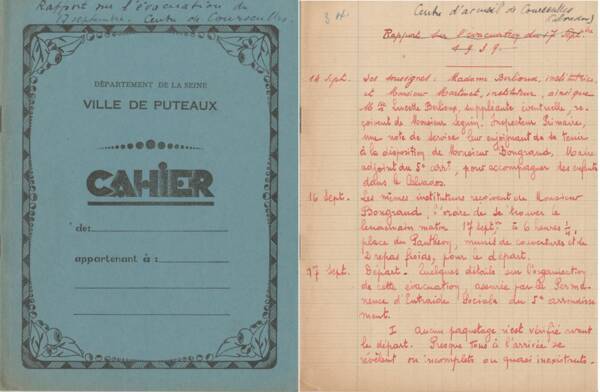 Rapport sur l'évacuation du
17 septembre. Centre de Courseulles.
DÉPARTEMENT DE LA SEINE
VILLE DE PUTEAUX
CAHIER
de:
appartenant à :
3 H.
Centre d'accueil de Courseulles
(Calvados)
Rapport sur l'évacuation du 17 Sept.bre
1939.
14 Sept. Les soussignés : Madame Berlioux, institutrice,
et Monsieur Martinet, instituteur, ainsi que
Mlle Lucette Berlioux, suppléante éventuelle, re-
çoivent de Monsieur Seguin, Inspecteur Primaire,
une note de service leur enjoignant de se tenir
à la disposition de Monsieur Bongrand, Maire
adjoint du 5e arrt, pour accompagner des enfants
dans le Calvados.
16 Sept. Les mêmes instituteurs reçoivent de Monsieur
Bongrand, l'ordre de se trouver le
lendemain matin 17 Sept. à 6 heures 1/4,
place du Panthéon, munis de couvertures et de
2 repas froids, pour le départ.
17 Sept. Départ - Quelques détails sur l'organisation
de cette évacuation, assurée par la Perma-
nence d'Entraide Sociale du 5e arrondisse-
ment.
I aucun paquetage n'est vérifié avant
le départ. Presque tous à l'arrivée se
révèlent ou incomplets ou quasi inexistants.